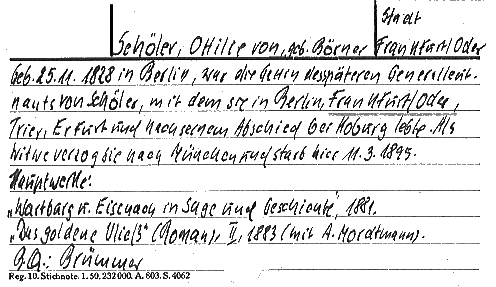 Stadt
Schöler, Ottilie von, geb. Börner Frankfurt/Oder
Geb. 25.11.1828 in Berlin, war die Gattin des späteren Generalleut-
nants von Schöler, mit dem sie in Berlin, Frankfurt/Oder,
Trier, Erfurt und nach seinem Abschied bei Coburg lebte. Als
Witwe verzog sie nach München und starb hier 11.3.1895.
Hauptwerke:
„Wartburg u. Eisenach in Sage und Geschichte", 1881.
„Das goldene Vließ" (Roman), II, 1883 (mit A. Mordtmann).
B.Q.: Brümmer
Reg. 10. Stichnote. 1. 59, 232 000. A. 603. S. 4062